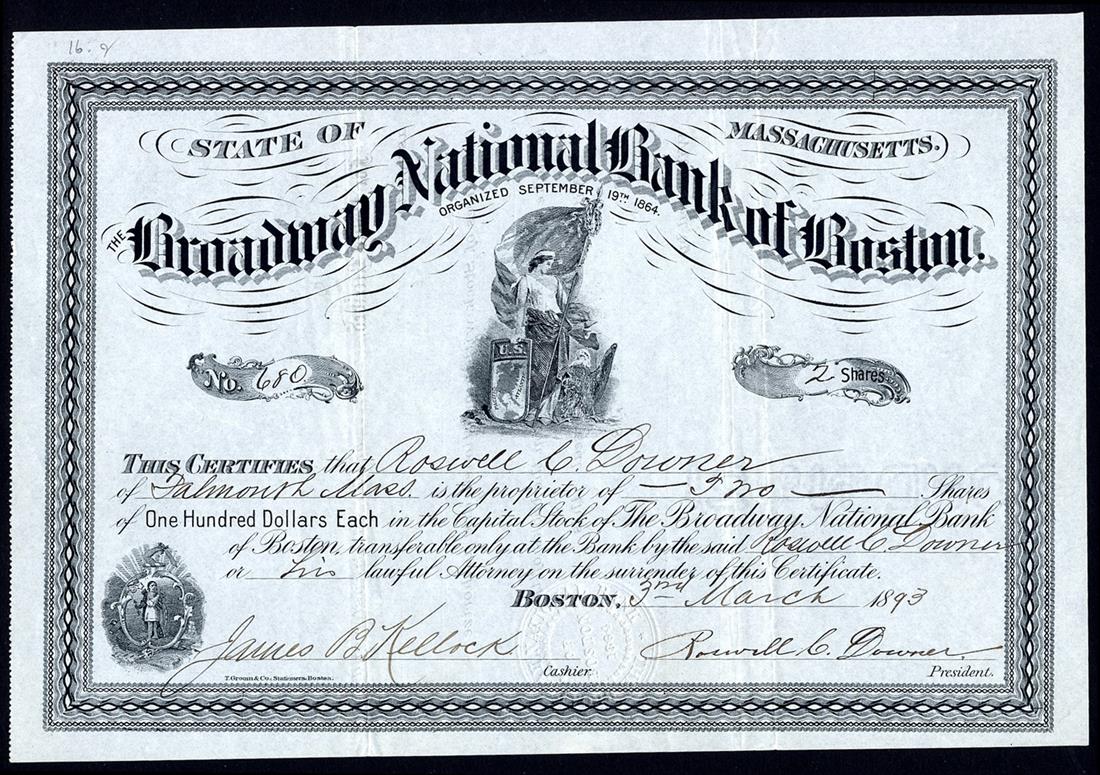 16. 2
STATE OF MASSACHUSETTS.
THE Broadway National Bank of Boston.
ORGANIZED SEPTEMBER 19TH 1864.
U.S.
No. 680
2 Shares
THIS CERTIFIES, that Roswell C. Downer
of Falmouth Mass. is the proprietor of — Two — Shares
of One Hundred Dollars Each in the Capital Stock of The Broadway National Bank
of Boston, transferable only at the Bank by the said Roswell C Downer
or his lawful Attorney on the surrender of this Certificate.
BOSTON, March 1893
James B. Kellock Roswell C. Downer
Cashier. President.
T. Groom & Co. Stationers, Boston.